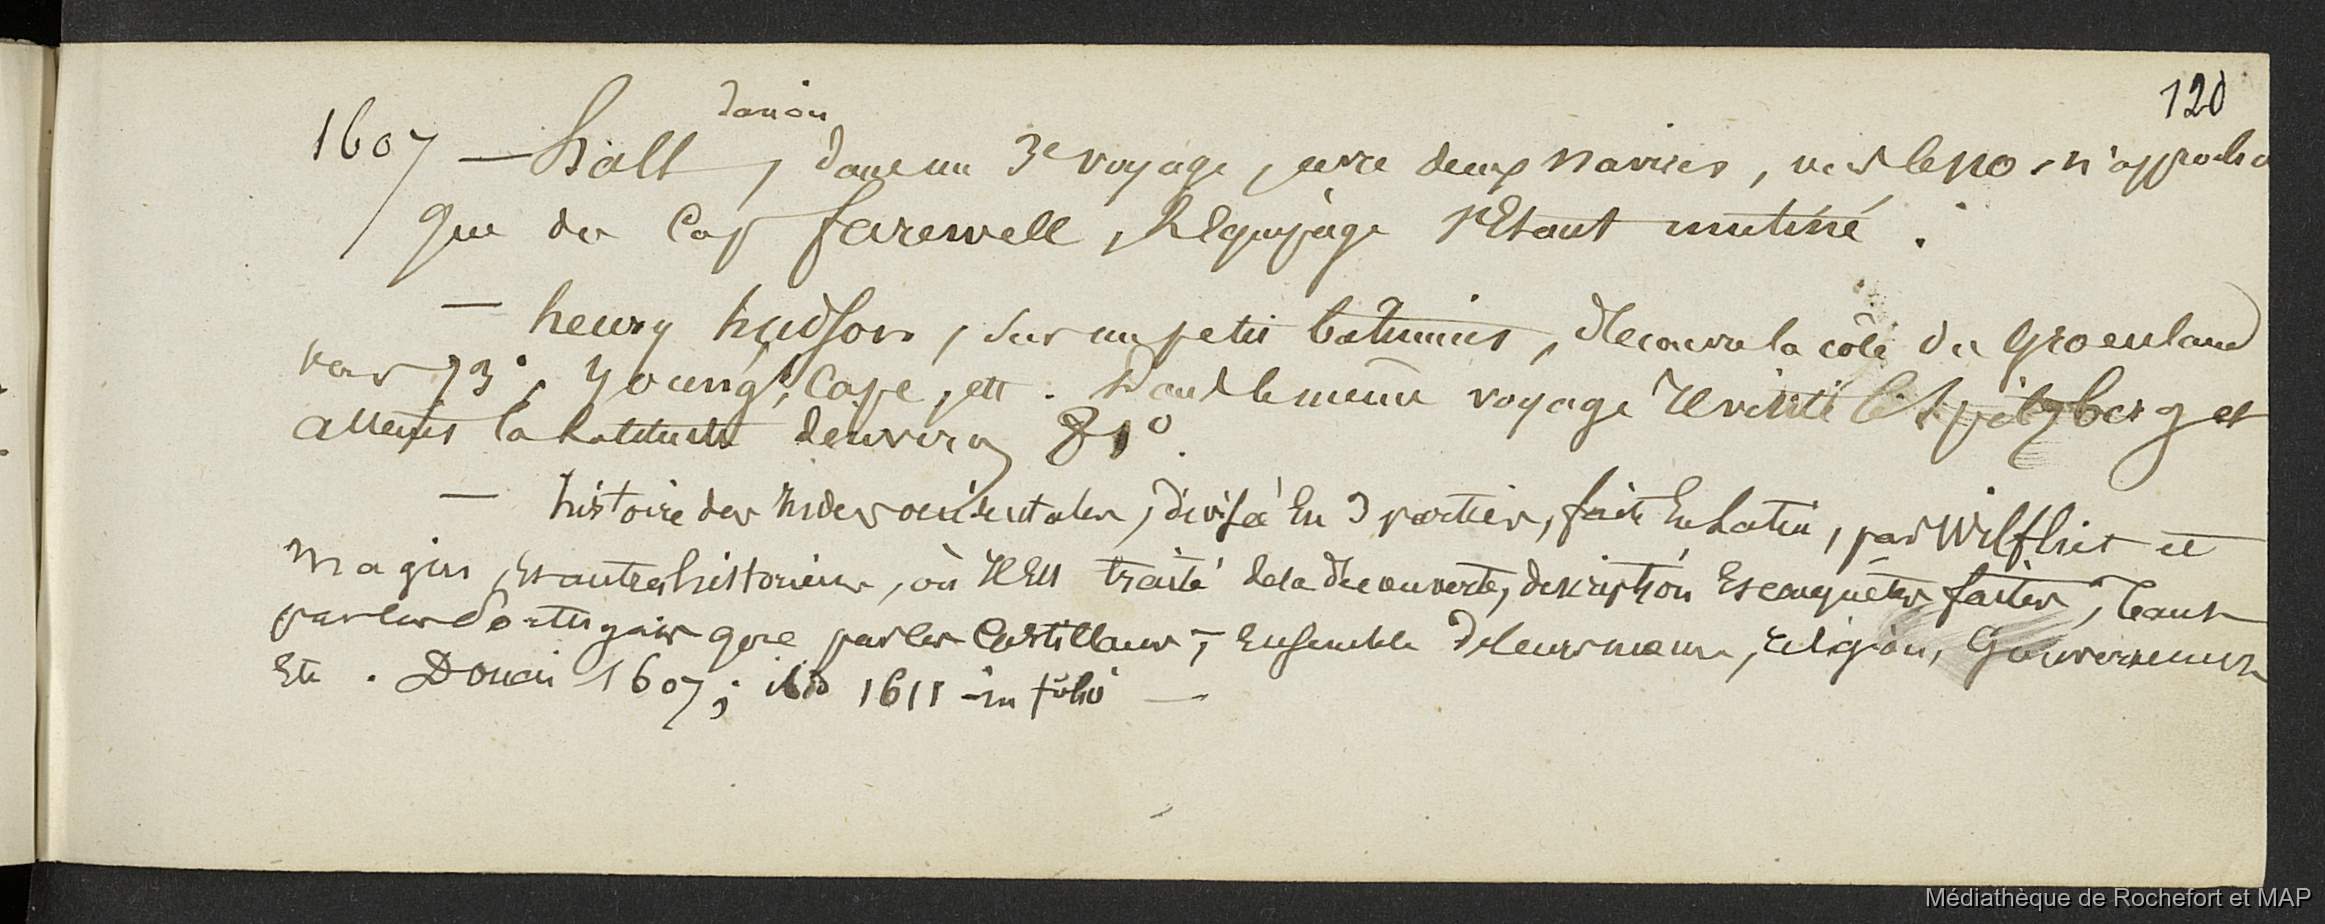 120
danois
1607 — Hall, dans un 3e voyage, avec deux navires, vers le no. n'approcha
que du Cap farewell, l'Equipage s'Etant mutiné.
— henry hudson, sur un petit batiment, decouvre la côte du Groenland
vers 73°, Young's Cape, ett. Dans le même voyage Il visite le Spitzberg et
atteint la latitude d'environ 81°.
— histoire des Indes occidentales, divisée En 3 parties, faite En Latin, par Wilfliet et
Magin, Et autres historiens, où Il Est traité de la decouverte, description Et conquêtes faites, tant
par les Portugais que par les Castillans, Ensemble de leurs moeurs, religion, Gouvernemens
Etc. Douai 1607; ibid 1611 in folio —
Médiathèque de Rochefort et MAP